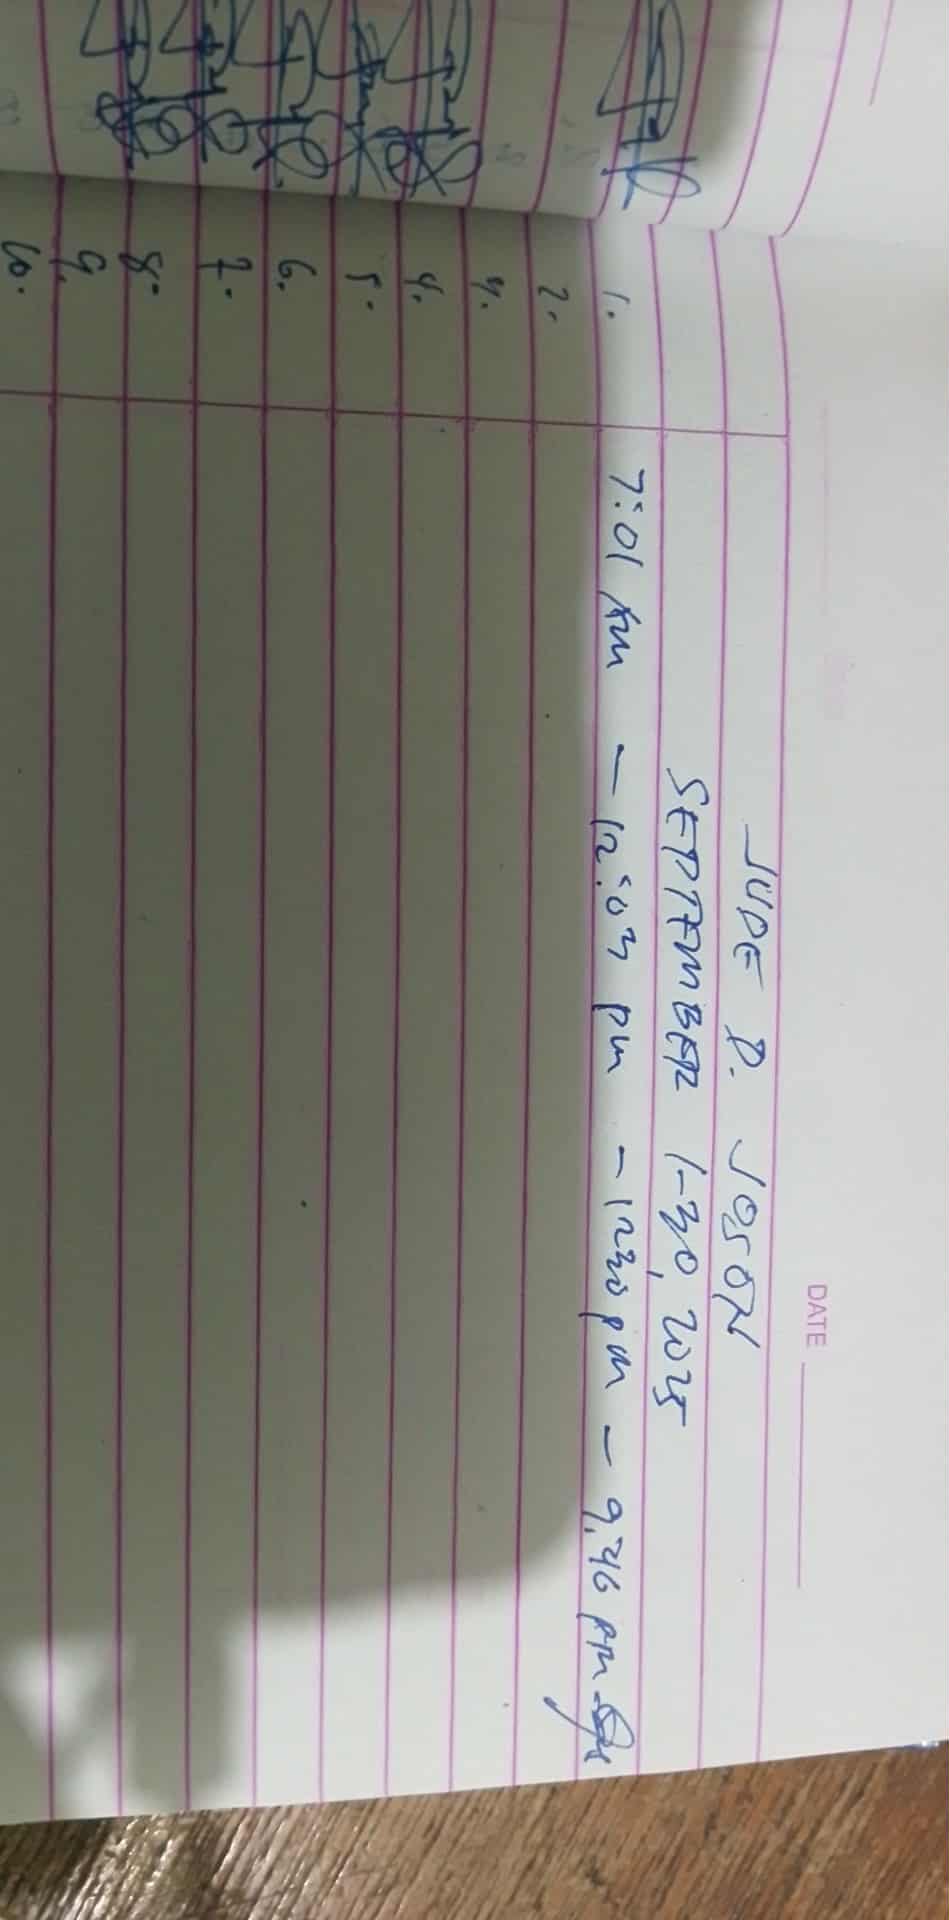 DATE
JUDE P. JOSON
SEPTEMBER 1-30, 2025
1. 7:01 Am - 12:03 pm - 1230 pm - 9:46 pm -
2.
3.
4.
5.
6.
7.
8.
9.
10.